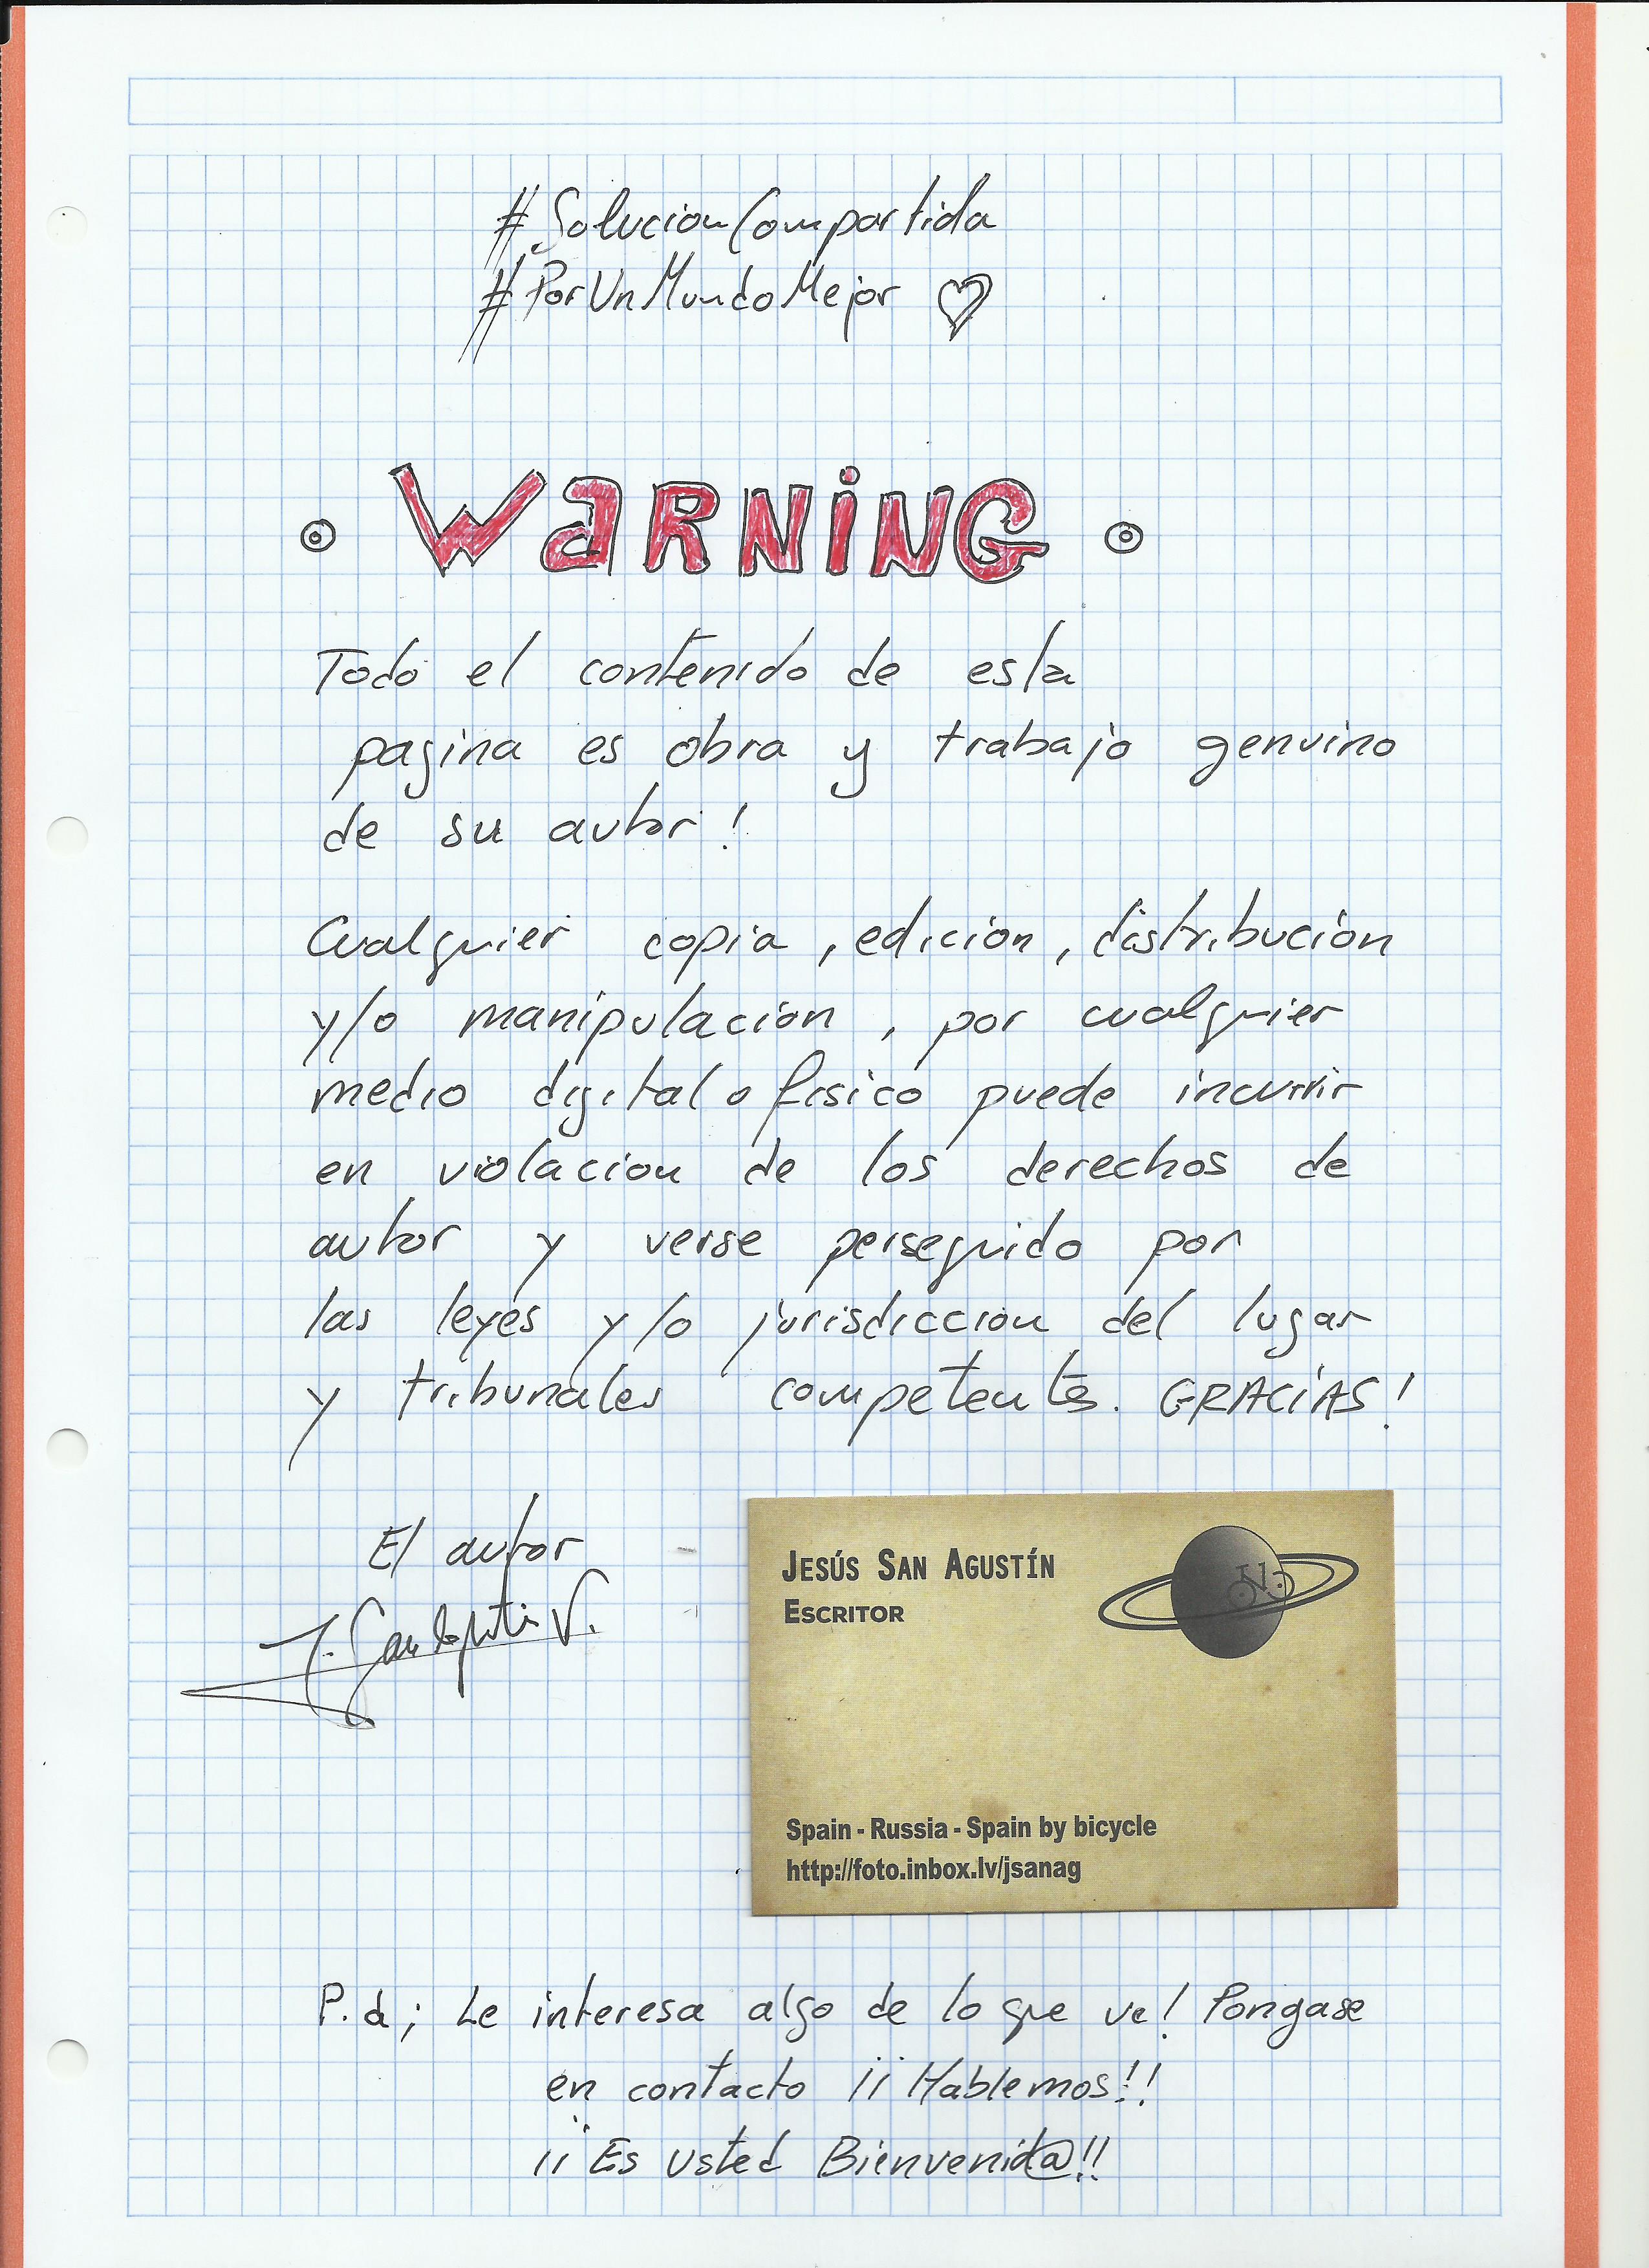 #SolucionCompartida
#PorUnMundoMejor
WaRNiNG
Todo el contenido de esta
pagina es obra y trabajo genuino
de su autor!
Cualquier copia, edicion, distribución
y/o manipulacion, por cualquier
medio digital o fisico puede incurrir
en violacion de los derechos de
autor y verse perseguido por
las leyes y/o jurisdiccion del lugar
y tribunales competentes. GRACiAS!
El autor
J. SanAgustin V.
JESÚS SAN AGUSTÍN
ESCRITOR
Spain - Russia - Spain by bicycle
http://foto.inbox.lv/jsanag
P.d; Le interesa algo de lo que ve! Pongase
en contacto ¡¡Hablemos!!
¡¡Es usted Bienvenid@!!